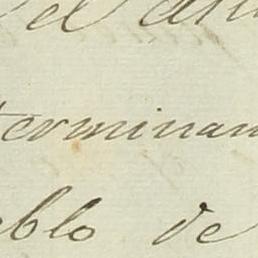 el
terminan
eblo de